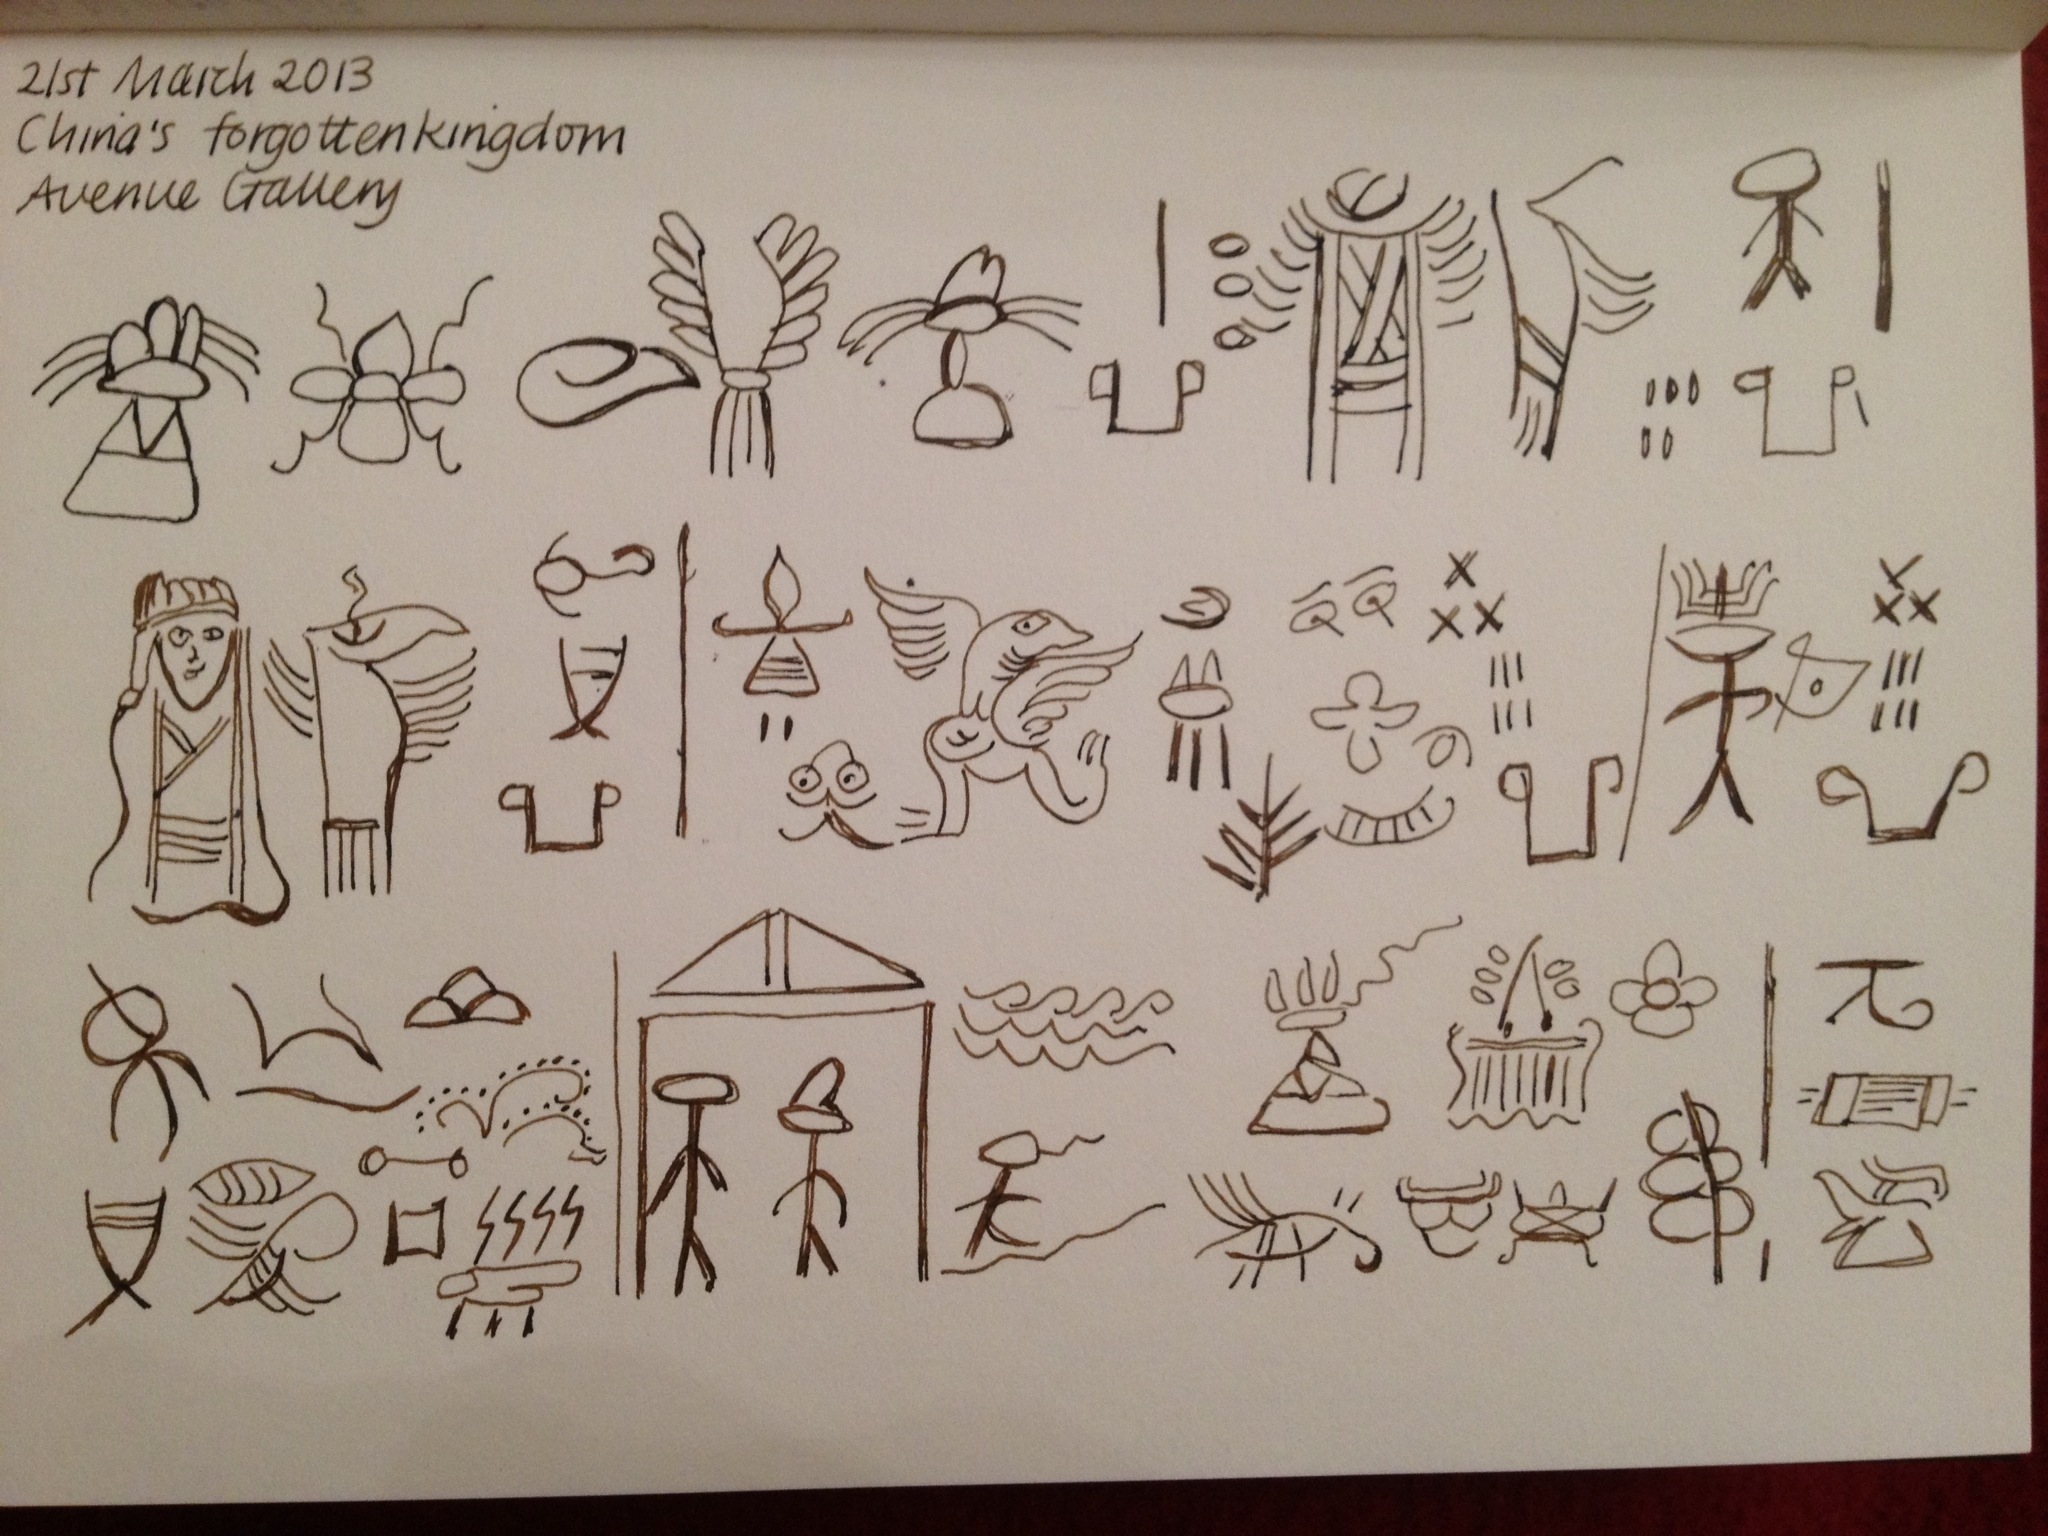 21st March 2013
China's forgotten kingdom
Avenue Gallery